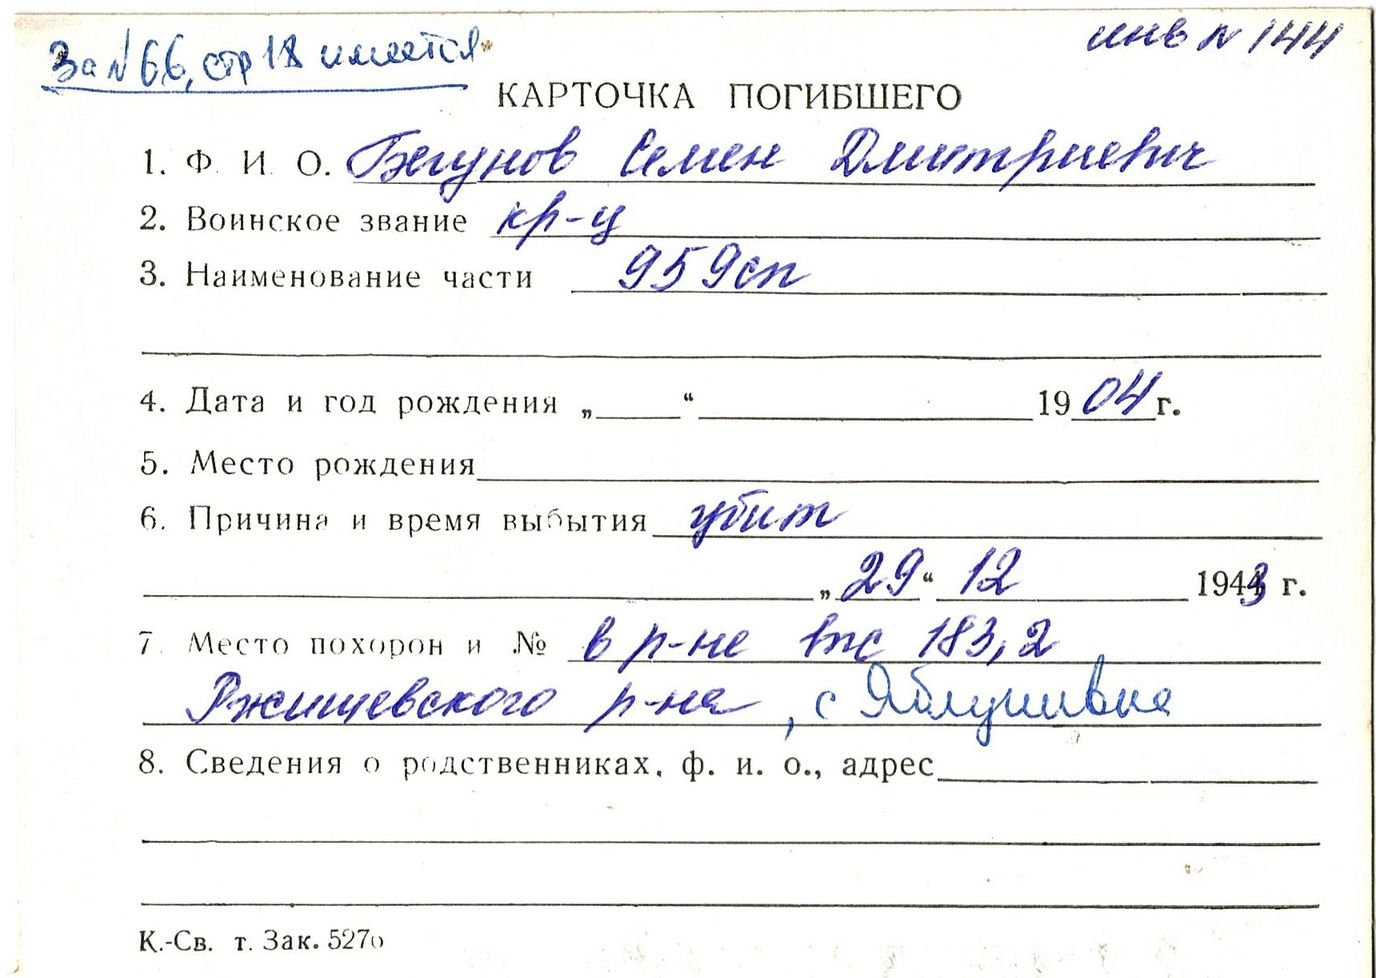 За №66, стр 18 имеется
инв № 144
КАРТОЧКА ПОГИБШЕГО
1. Ф. И. О. Бегунов Семен Дмитриевич
2. Воинское звание кр-ц
3. Наименование части 959сп
4. Дата и год рождения „ “ 1904 г.
5. Место рождения
6. Причина и время выбытия убит
„29“ 12 1943 г.
7. Место похорон и № в р-не выс 183,2
Ржищевского р-на, с Яблушивка
8. Сведения о родственниках, ф. и. о., адрес
К.-Св. т. Зак. 5270